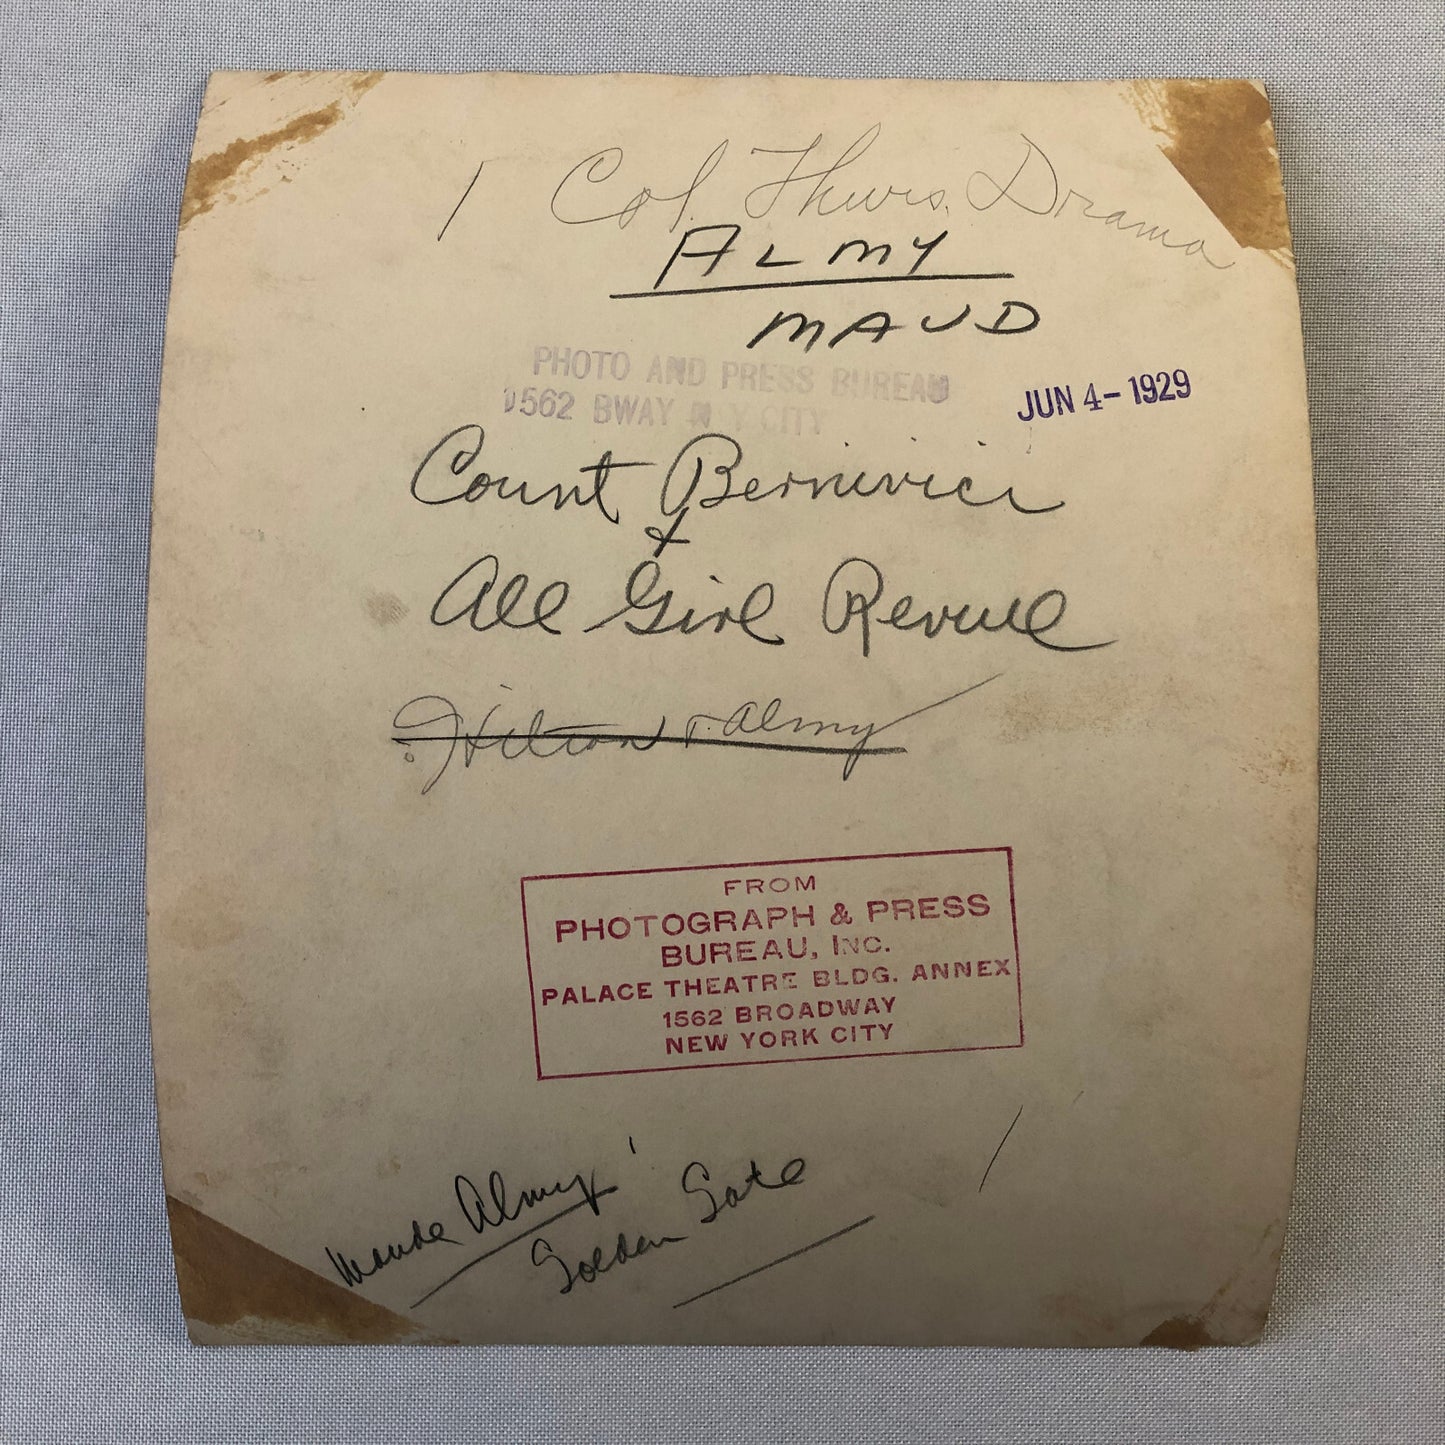 1 Col. Thurs. Drama
ALMY
MAUD
PHOTO AND PRESS BUREAU
1562 BWAY N Y CITY
JUN 4-1929
Count Bernivici
+
All Girl Revue
Hilton + Almy
FROM
PHOTOGRAPH & PRESS
BUREAU, INC.
PALACE THEATRE BLDG. ANNEX
1562 BROADWAY
NEW YORK CITY
Maude Almy
Golden Gate